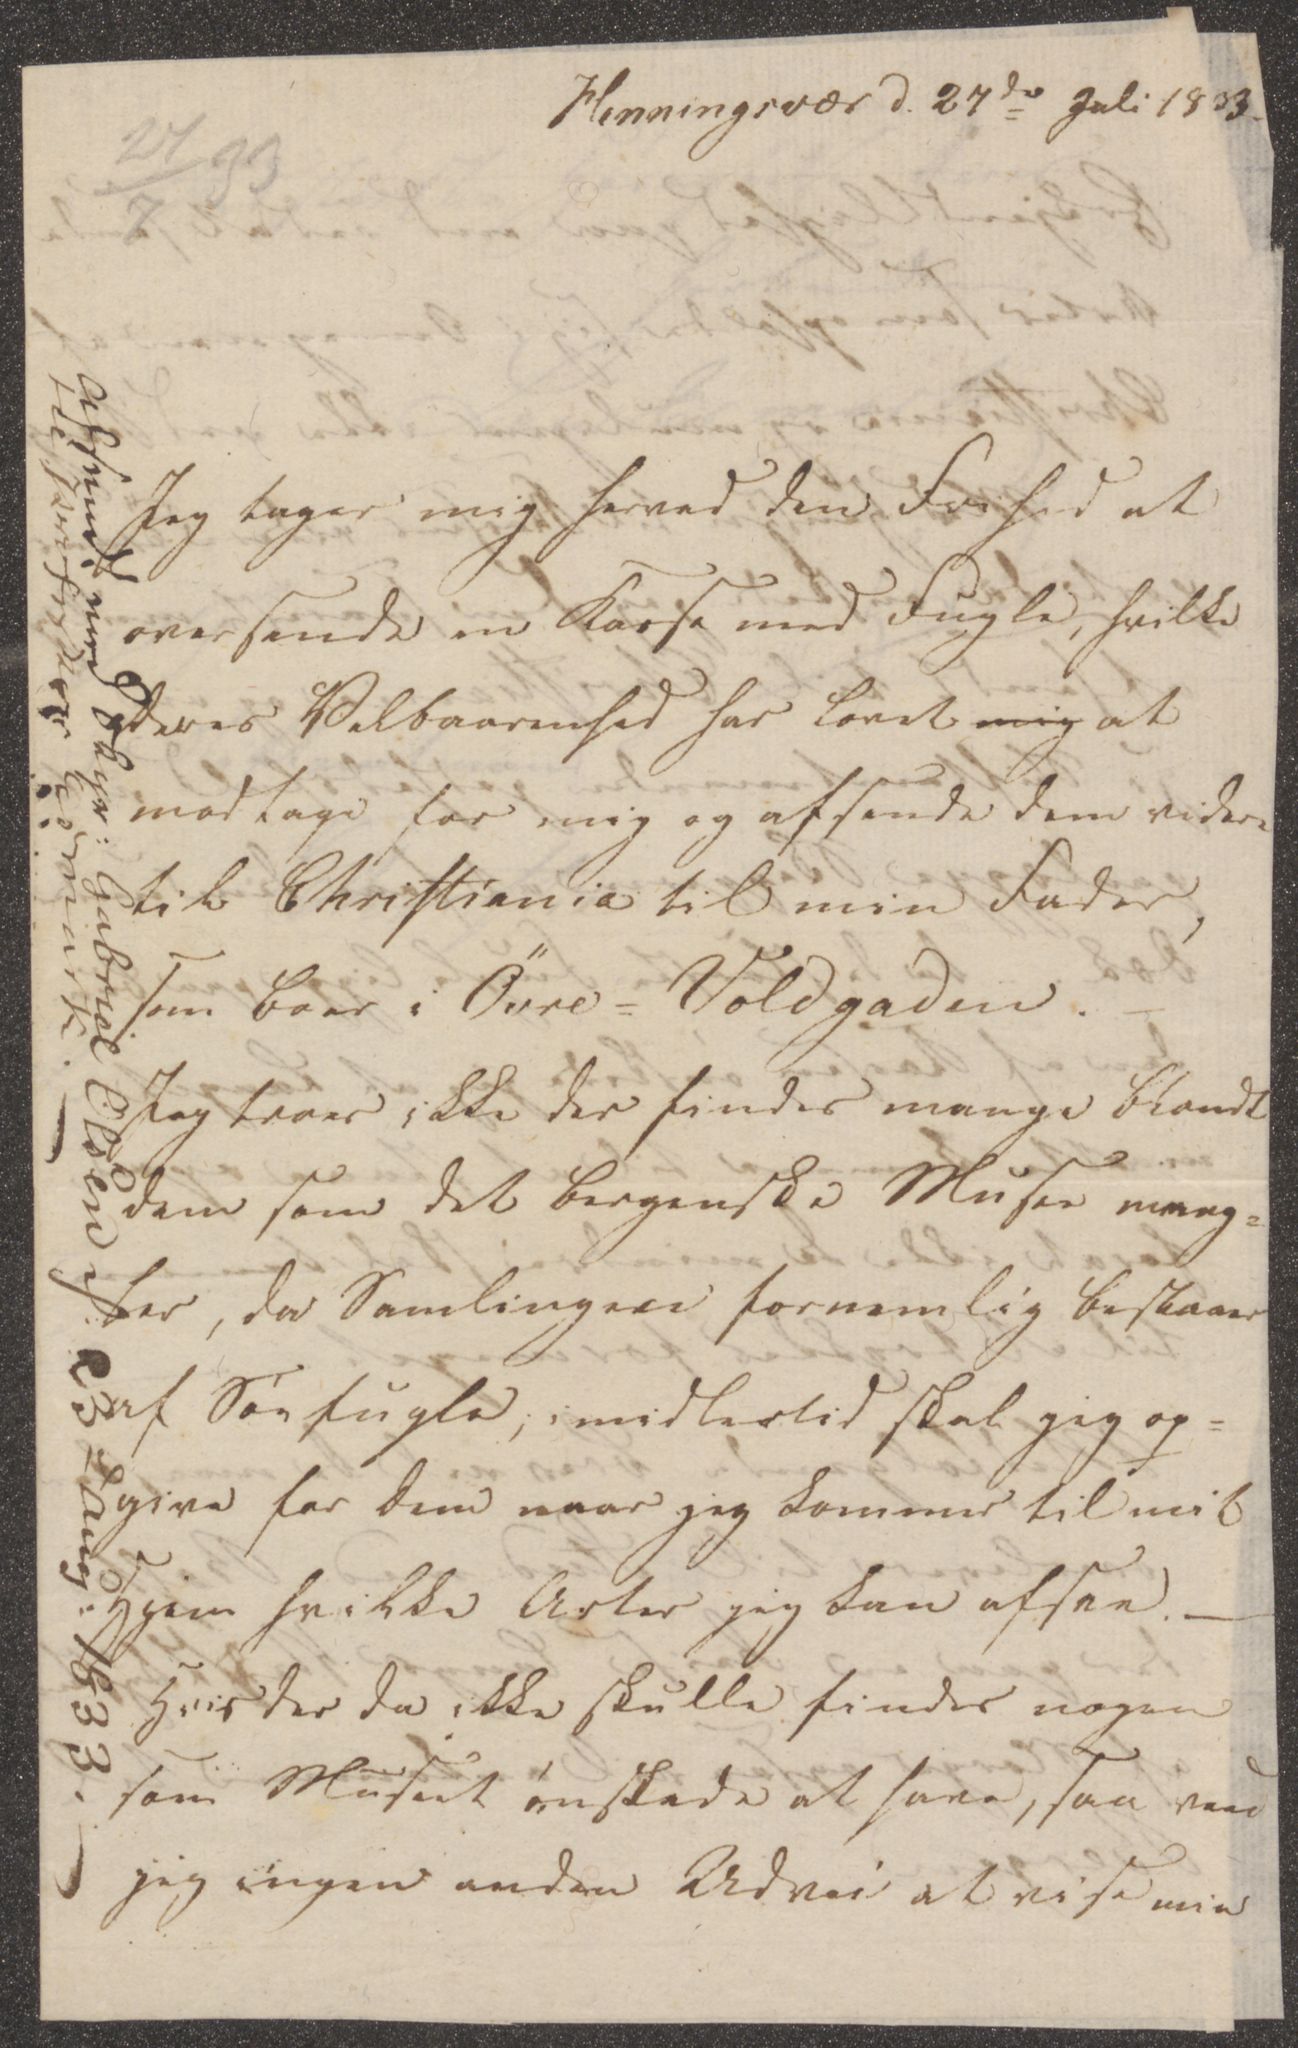 Henningsvær d. 27de Juli 1833.
27/7 33
Jeg tager mig herved den Frihed at
oversende en Kasse med Fugle, hvilke
Deres Velbaarenhed har lovet mig at
modtage for mig og afsende dem videre
til Christiania til min Fader,
som boer i Övre=Voldgaden. —
Jeg troer ikke der findes mange blandt
dem som det bergenske Musee mang=
ler, da Samlingen fornemlig bestaaer
af Söefugle; imidlertid skal jeg op=
give for dem naar jeg kommer til mit
Hjem hvilke Arter jeg kan afsee. —
Hvis der da ikke skulle findes nogen
som Museet ønskede at have, saa veed
jeg ingen anden Udvei at vise min
Afsendt med Skipr: Gabriel Olsen
23 Aug: 1833.